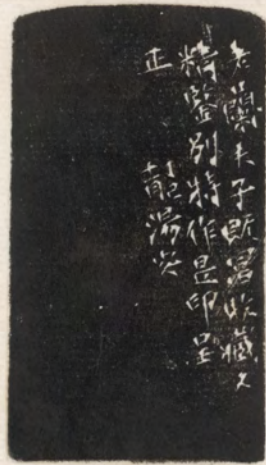 老蘭夫子既富收藏又
精鑒別特作是印呈
正　　龍湯安